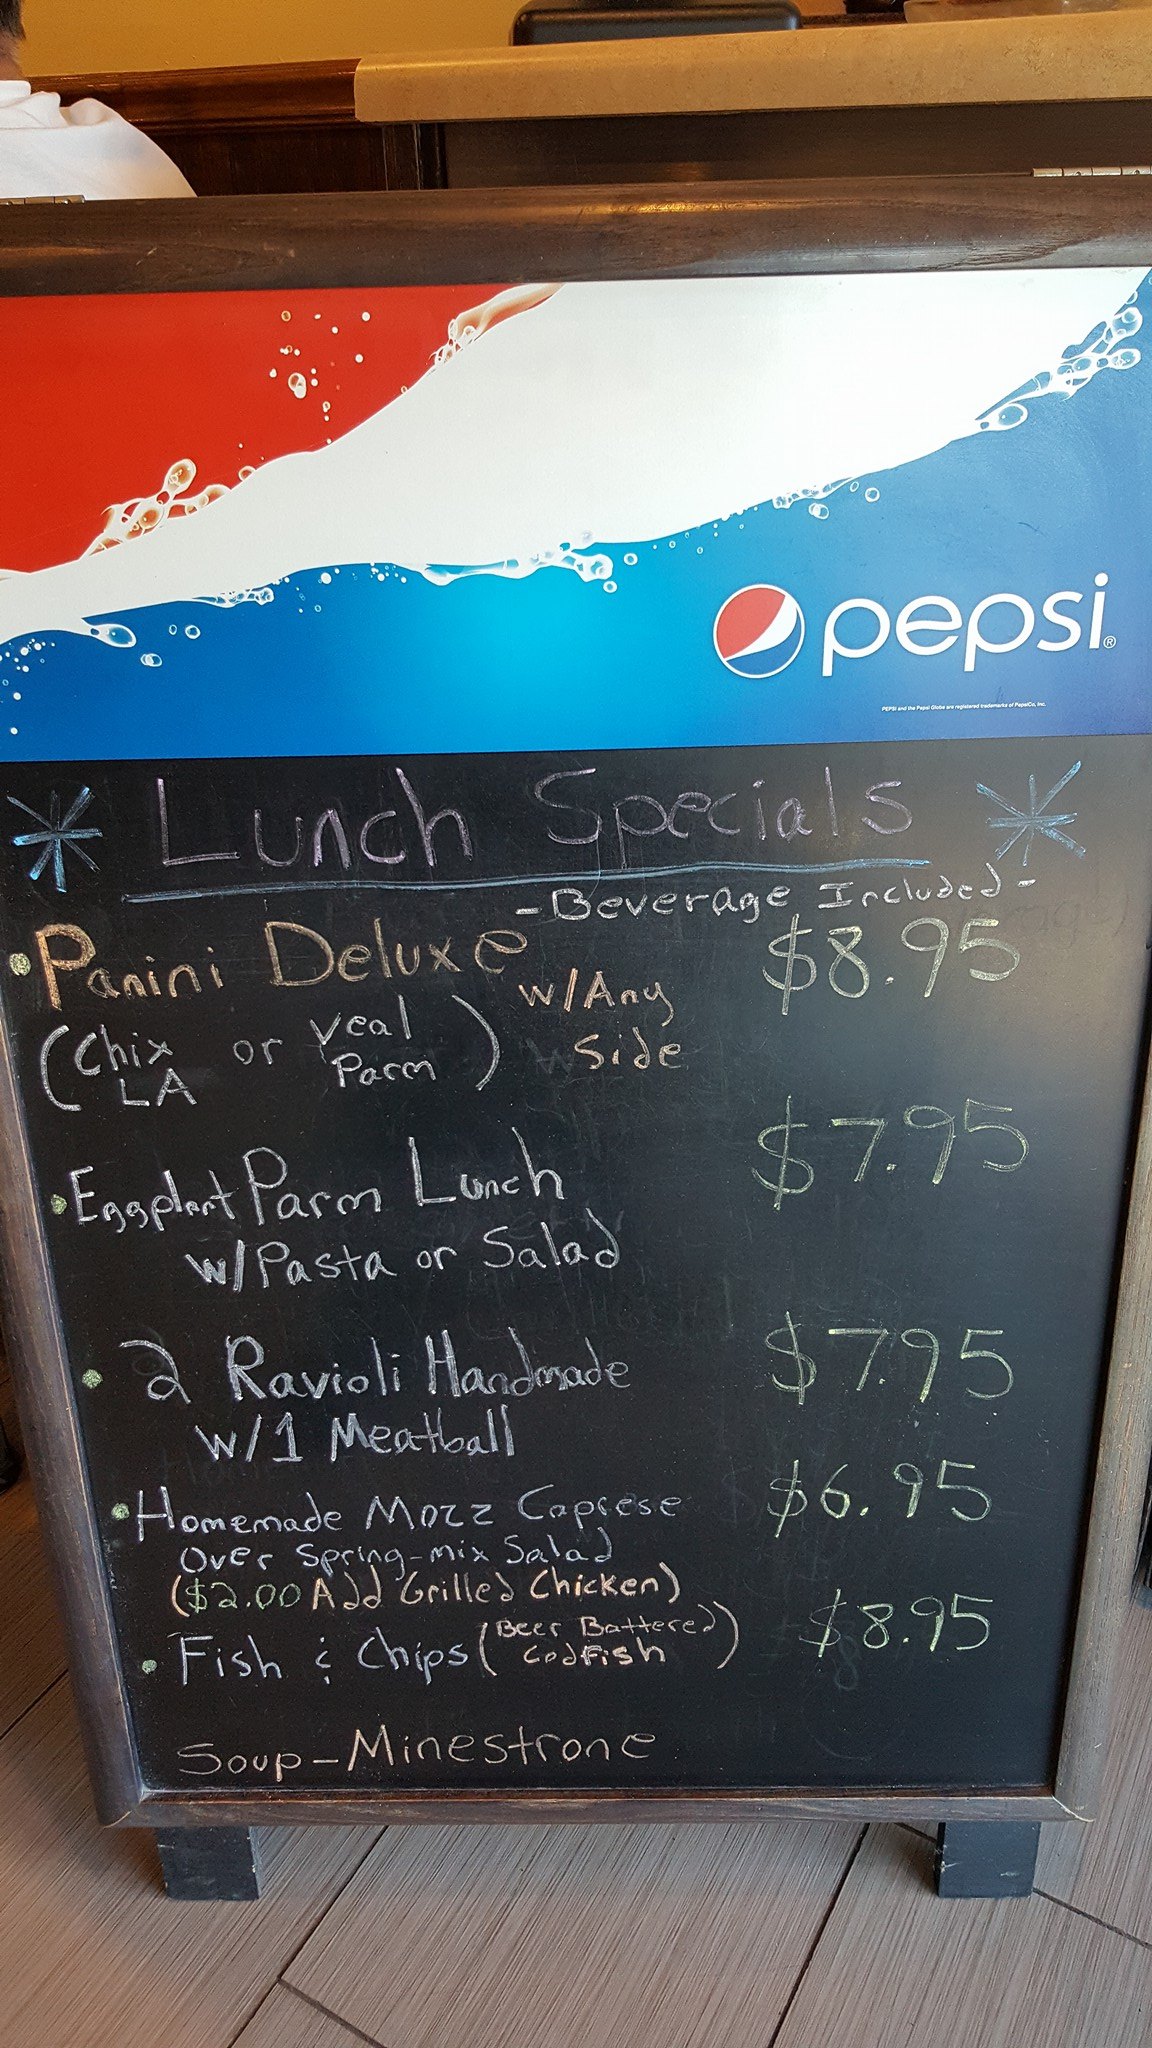 pepsi®
PEPSI and the Pepsi Globe are registered trademarks of PepsiCo, Inc.
* Lunch Specials *
- Beverage Included -
• Panini Deluxe w/Any Side $8.95
(Chix LA or Veal Parm)
• Eggplant Parm Lunch $7.95
w/Pasta or Salad
• 2 Ravioli Handmade $7.95
w/1 Meatball
• Homemade Mozz Caprese $6.95
Over Spring-mix Salad
($2.00 Add Grilled Chicken)
• Fish & Chips (Beer Battered Codfish) $8.95
Soup - Minestrone